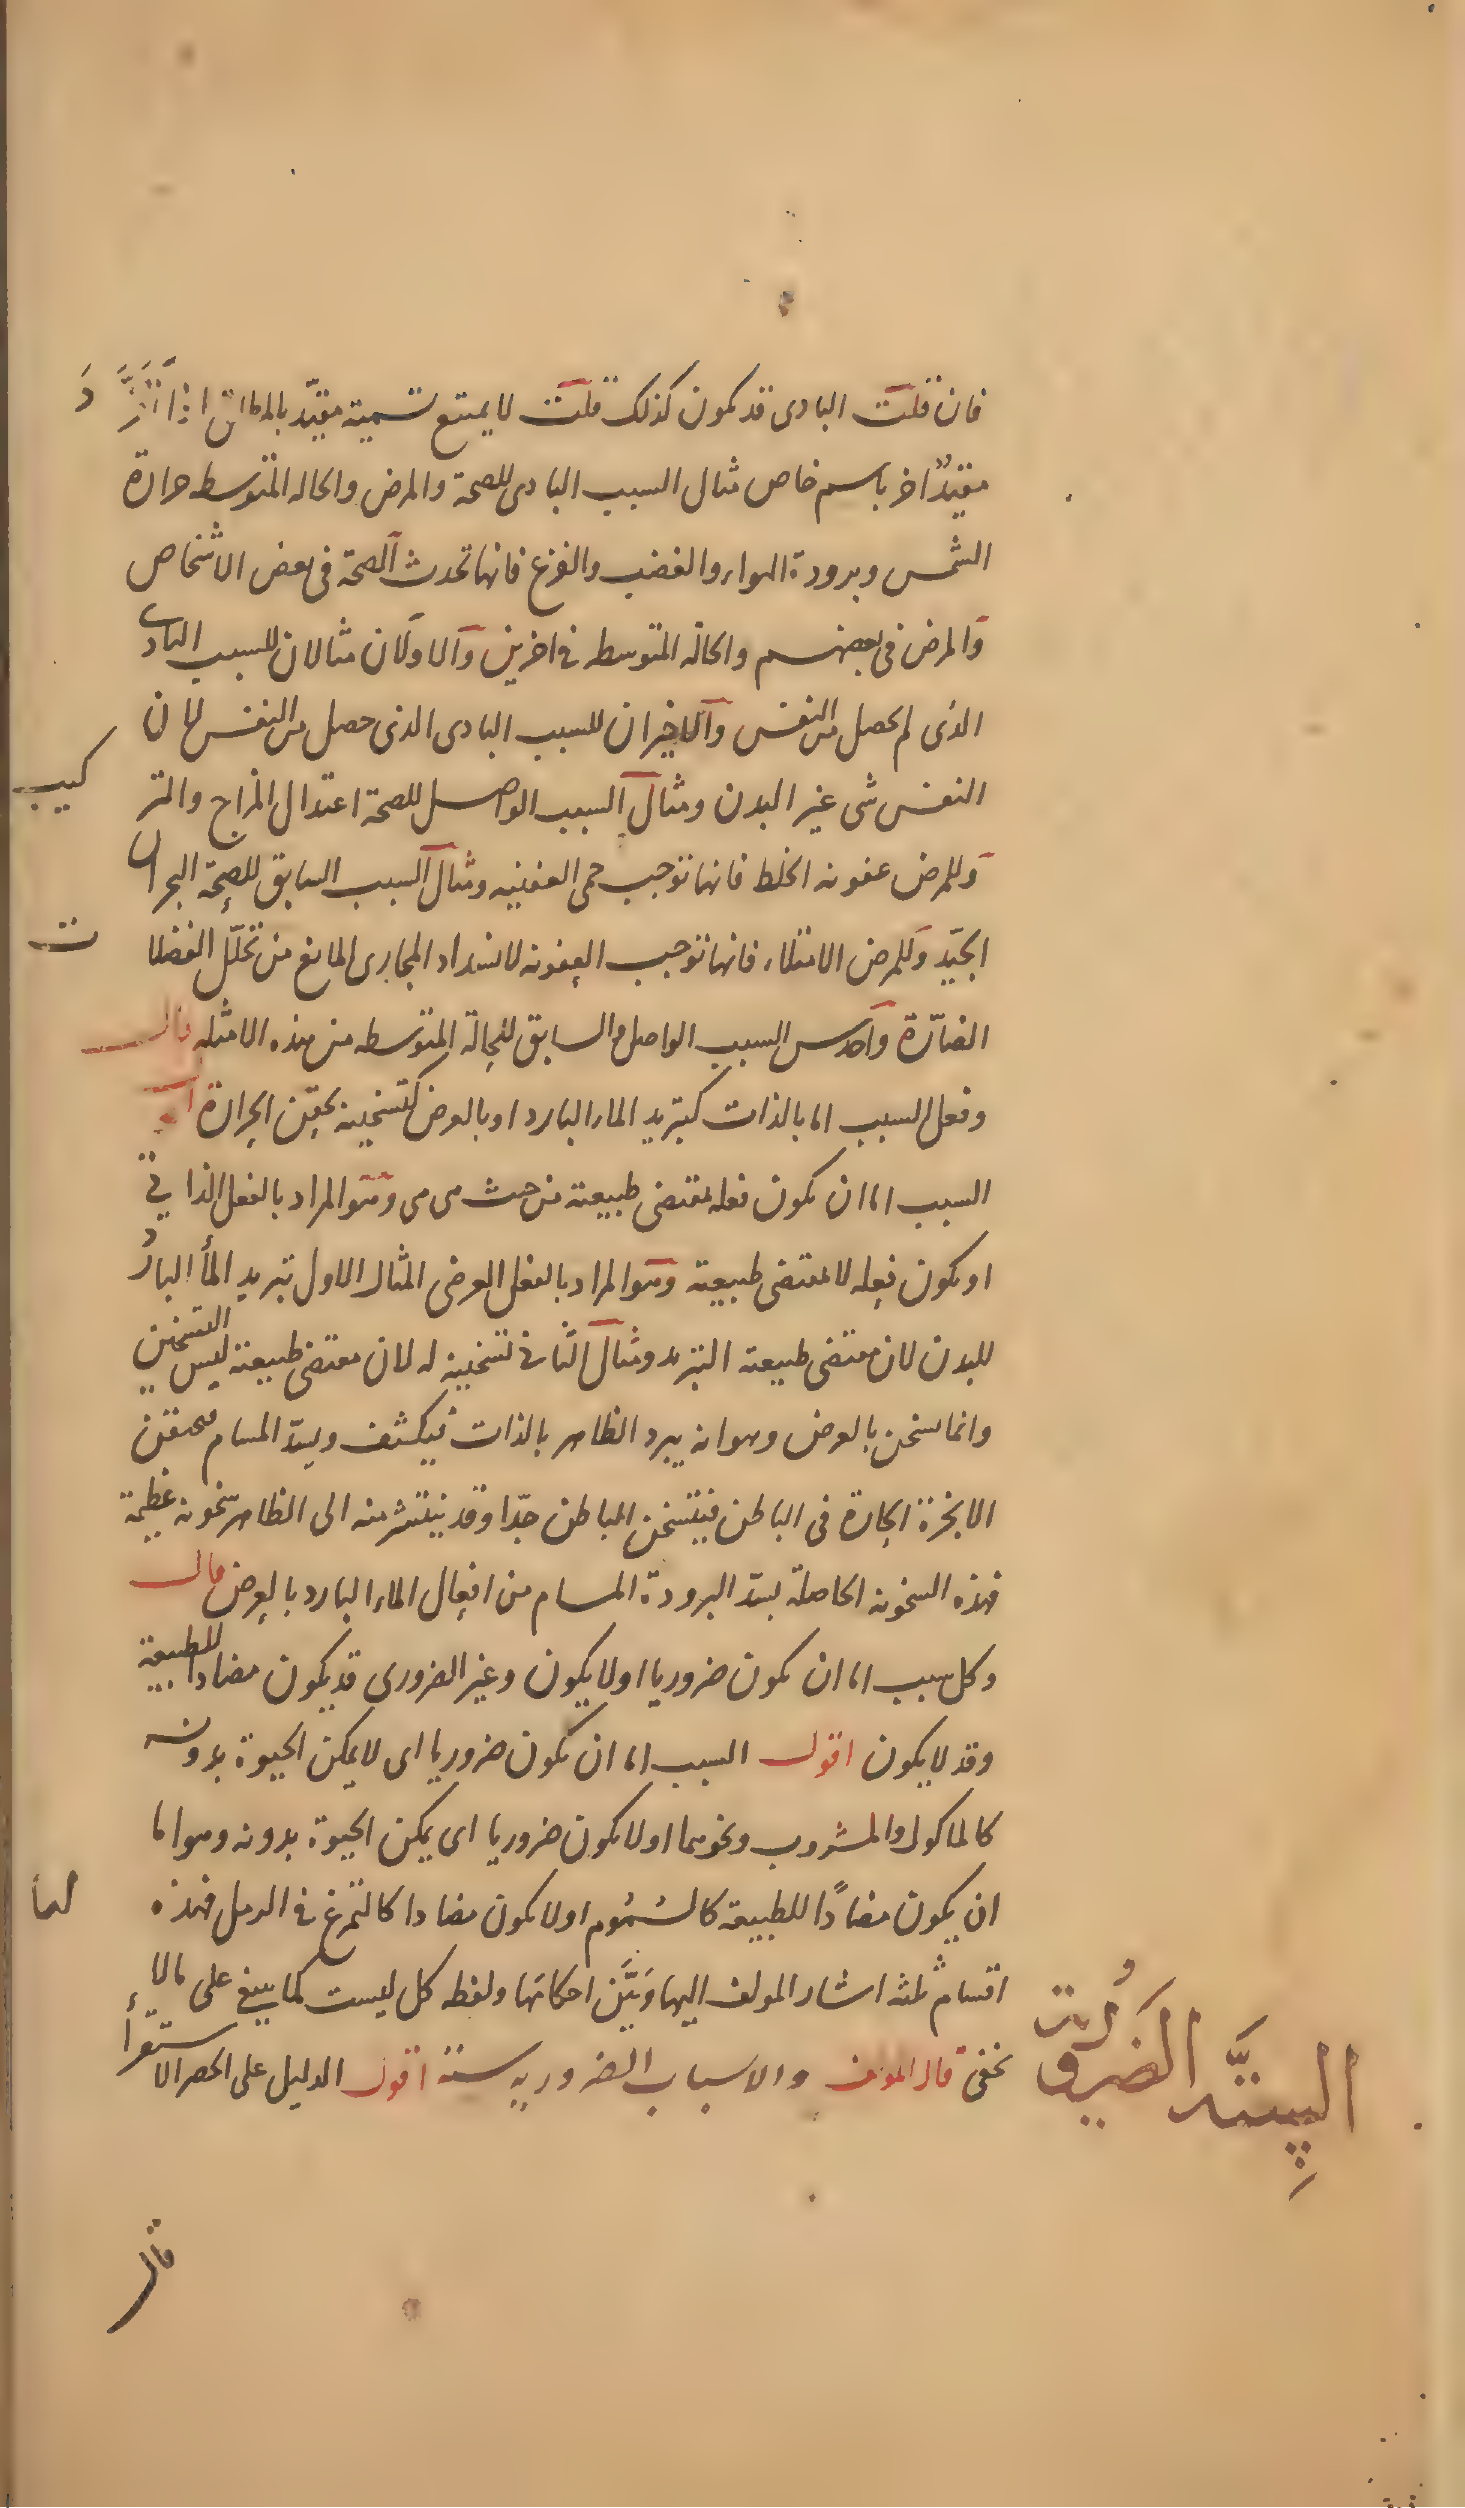 فان قلت البادى قد يكون كذلك قلت لا يمتنع تسمية مقيد بالمطلق اذا تفرد
مقيد اخر باسم خاص مثال السبب البادى للصحة والمرض والحاله المتوسطه حرارة
الشمس وبرودة الهواء والغضب والفزع فانها تحدث الصحة فى بعض الاشخاص
والمرض فى بعضهم والحالة المتوسطه فى اخرين والاولان مثالان للسبب البادى
الذى لم يحصل من النفس والاخيران للسبب البادى الذى حصل من النفس لان
النفس شى غير البدن ومثال السبب الواصل للصحة اعتدال المزاج والتركيب
وللمرض عفونه الخلط فانها توجب حمى العفنيه ومثال السبب السابق للصحة البحران
الجيد وللمرض الامتلاء فانها توجب العفونه لانسداد المجارى المانع من تحلل الفضلات
الضارة واحدس السبب الواصل والسابق للحالة المتوسطه من هذه الامثله قال
وفعل السبب اما بالذات كتبريد الماء البارد او بالعرض كتسخينه بحقن الحرارة
السبب اما ان يكون فعله مقتضى طبيعته من حيث هى هى وهو المراد بالفعل الذاتى
او يكون فعله لا مقتضى طبيعته وهو المراد بالفعل العرضى المثال الاول تبريد المأ البارد
للبدن لان مقتضى طبيعته التبريد ومثال الثانى تسخينه له لان مقتضى طبيعته ليس التسخين
وانما يسخن بالعرض وهو انه يبرد الظاهر بالذات فيكثف ويسد المسام فيحتقن
الابخرة الحارة فى الباطن فيتسخن الباطن جدا وقد ينتشر منه الى الظاهر سخونه عظيمة
فهذه السخونه الحاصلة بسد البرودة المسام من افعال الماء البارد بالعرض قال
وكل سبب اما ان يكون ضروريا اولا يكون وغير الضرورى قد يكون مضادا للطبيعة
وقد لا يكون اقول السبب اما ان يكون ضروريا اى لا يمكن الحيوة بدونه
كالماكول والمشروب ونحوهما اولا يكون ضروريا اى يمكن الحيوة بدونه وهو اما
ان يكون مضادا للطبيعة كالسموم اولا يكون مضادا كالتمرغ فى الرمل فهذه
اقسام ثلثة اشار المولف اليها وبين احكامها ولفظه كل ليست كما ينبغى على ما لا
يخفى قال المولف والاسباب الضروريه ستة اقول الدليل على الحصر الاستقرأ
الستة الضرورية
قال